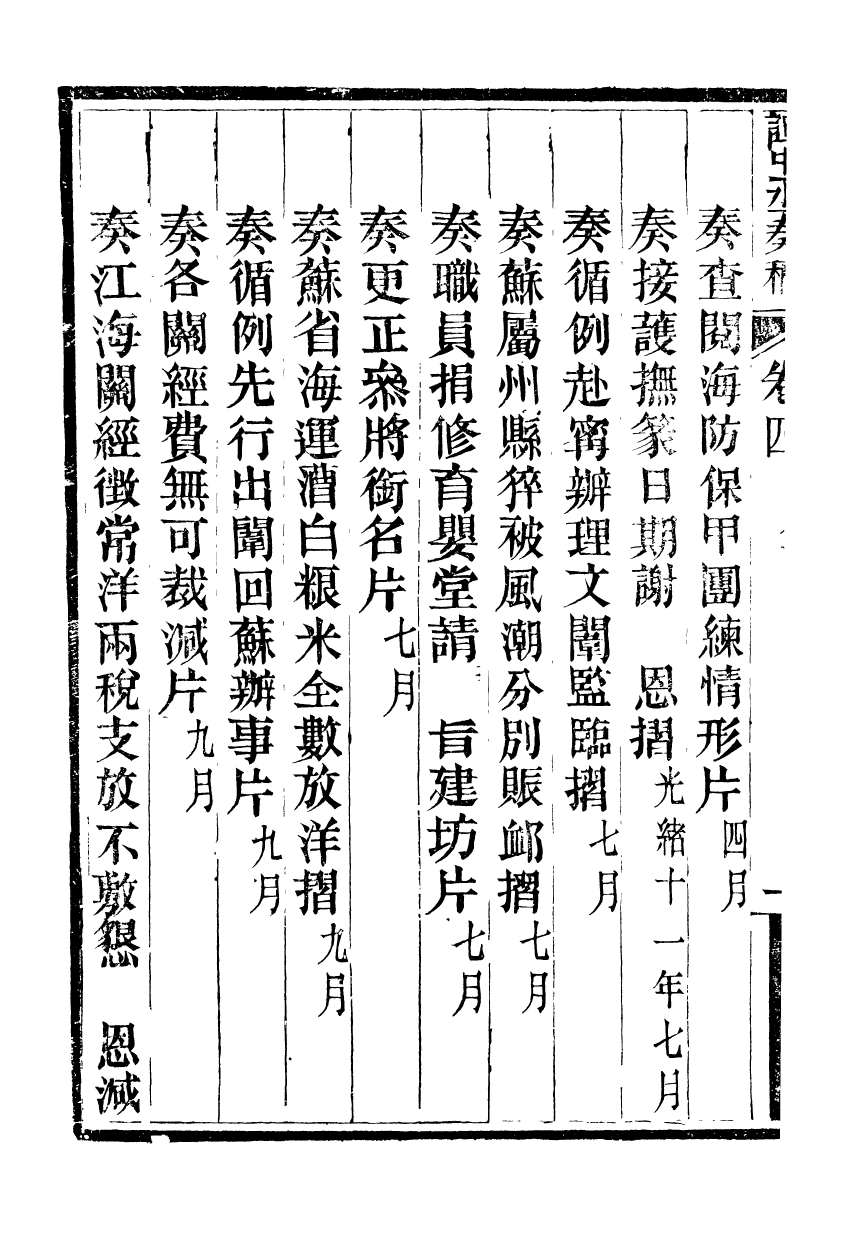 譚中丞奏稿 卷四 一
奏查閱海防保甲團練情形片四月
奏接護撫篆日期謝 恩摺光緒十一年七月
奏循例赴甯辦理文闈監臨摺七月
奏蘇屬州縣猝被風潮分別賑卹摺七月
奏職員捐修育嬰堂請 旨建坊片七月
奏更正叅將銜名片七月
奏蘇省海運漕白粮米全數放洋摺九月
奏循例先行出闈回蘇辦事片九月
奏各關經費無可裁減片九月
奏江海關經徵常洋兩稅支放不敷懇 恩減